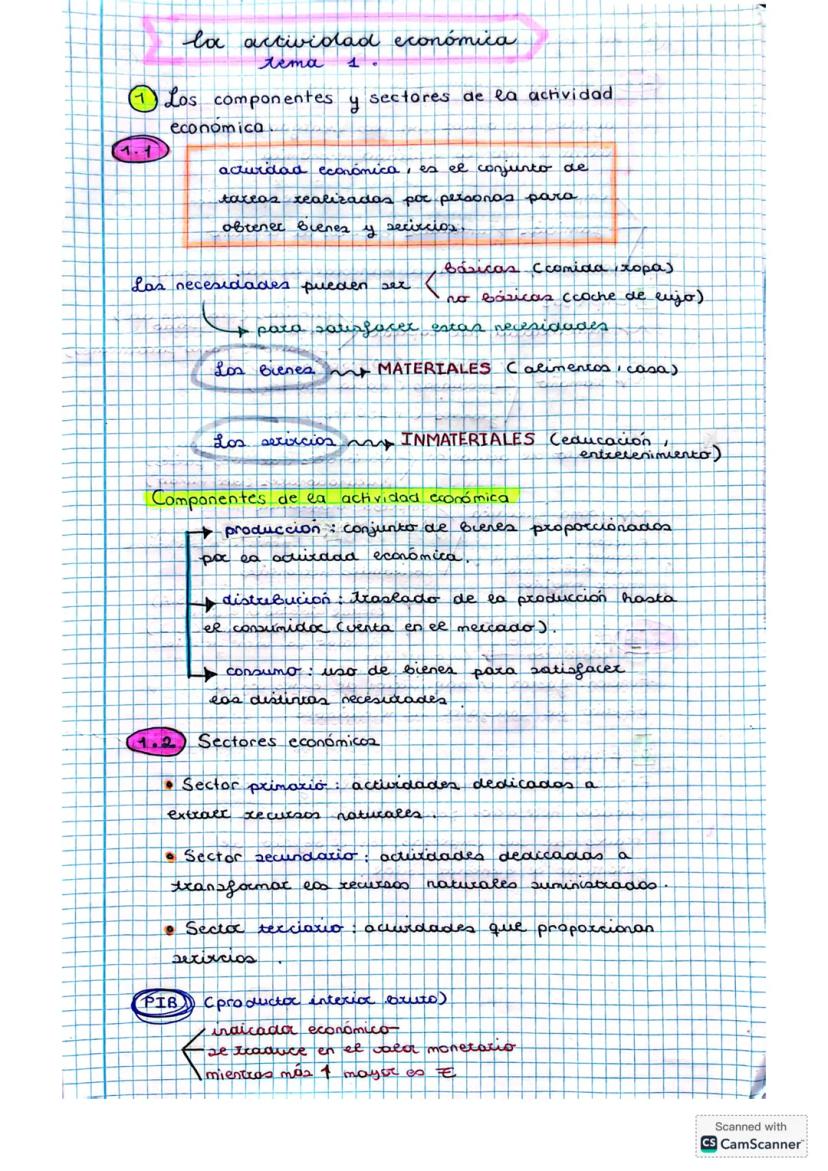 La actividad económica
tema 1.
1 Los componentes y sectores de la actividad
económica.
1.1
actividad económica, es el conjunto de
tareas realizadas por personas para
obtener bienes y servicios.
básicas (comida, ropa)
Las necesidades pueden ser
no básicas (coche de lujo)
para satisfacer estas necesidades
Los bienes → MATERIALES (alimentos, casa)
Los servicios → INMATERIALES (educación,
entretenimiento)
Componentes de la actividad económica
→ producción : conjunto de bienes proporcionados
por la actividad económica.
→ distribución : traslado de la producción hasta
el consumidor (venta en el mercado).
→ consumo : uso de bienes para satisfacer
las distintas necesidades.
1.2 Sectores económicos
• Sector primario : actividades dedicados a
extraer recursos naturales.
• Sector secundario : actividades dedicadas a
transformar los recursos naturales suministrados.
• Sector terciario : actividades que proporcionan
servicios.
PIB (productor interior bruto)
indicador económico
se traduce en el valor monetario
mientras más ↑ mayor es €
Scanned with
CS CamScanner